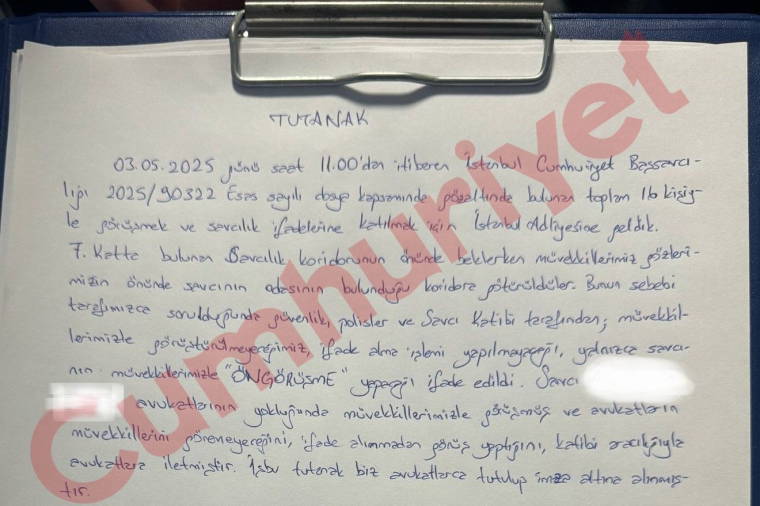 TUTANAK
03.05.2025 günü saat 11.00'dan itibaren İstanbul Cumhuriyet Başsavcı-
lığı 2025/90322 Esas sayılı dosya kapsamında gözaltında bulunan toplam 16 kişiy-
le görüşmek ve savcılık ifadelerine katılmak için İstanbul Adliyesine geldik.
7. Katta bulunan Savcılık koridorunun önünde beklerken müvekkillerimiz gözleri-
mizin önünde savcının odasının bulunduğu koridora götürüldüler. Bunun sebebi
tarafımızca sorulduğunda güvenlik, polisler ve Savcı Katibi tarafından; müvekkil-
lerimizle görüştürülmeyeceğimiz, ifade alma işlemi yapılmayacağı, yalnızca savcı-
nın müvekkillerimizle "ÖNGÖRÜŞME" yapacağı ifade edildi. Savcı
avukatlarının yokluğunda müvekkillerimizle görüşmüş ve avukatların
müvekkillerini göremeyeceğini, ifade alınmadan görüş yaptığını, katibi aracılığıyla
avukatlara iletmiştir. İşbu tutanak biz avukatlarca tutulup imza altına alınmış-
tır.
Cumhuriyet